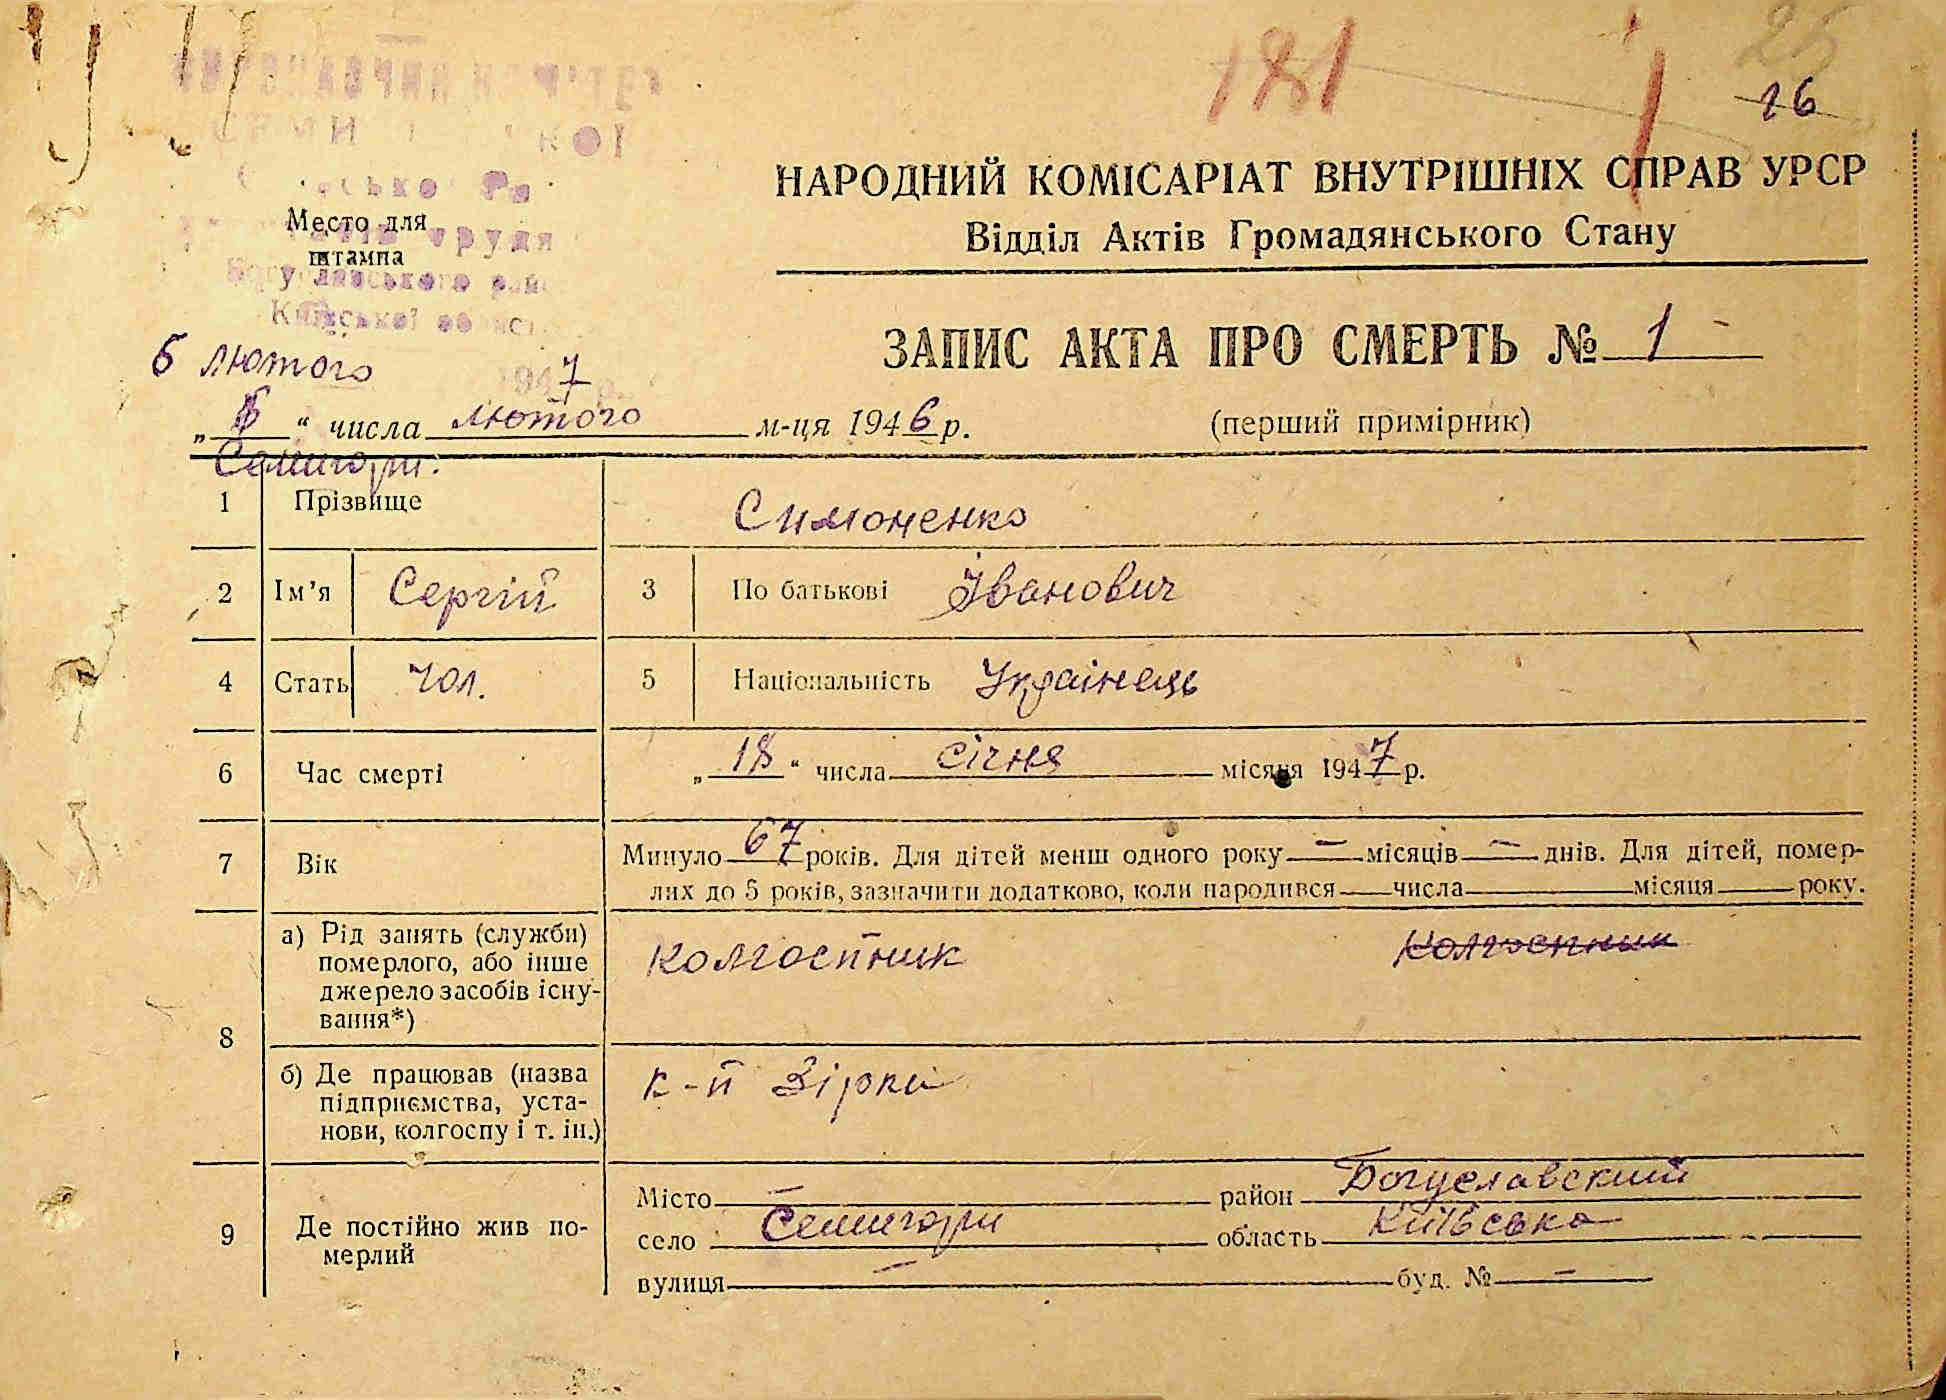 181
26
16
НАРОДНИЙ КОМІСАРІАТ ВНУТРІШНІХ СПРАВ УРСР
Відділ Актів Громадянського Стану
Место для
штампа
Богуславського
Київської
ЗАПИС АКТА ПРО СМЕРТЬ № 1
6 лютого 1947 р.
„ 6 “ числа лютого м-ця 1946 р. (перший примірник)
Семигори.
1 Прізвище Симоненко
2 Ім’я Сергій 3 По батькові Іванович
4 Стать Чол. 5 Національність Українець
6 Час смерті „ 18 “ числа січня місяця 1947 р.
7 Вік Минуло 67 років. Для дітей менш одного року — місяців — днів. Для дітей, помер-
лих до 5 років, зазначити додатково, коли народився числа місяця року.
8 а) Рід занять (служби)
померлого, або інше
джерело засобів існу-
вання*)
колгоспник колгоспник
б) Де працював (назва
підприємства, уста-
нови, колгоспу і т. ін.)
к-п Зірка
9 Де постійно жив по-
мерлий
Місто — район Богуславский
село Семигори область Київська
вулиця — буд. № —